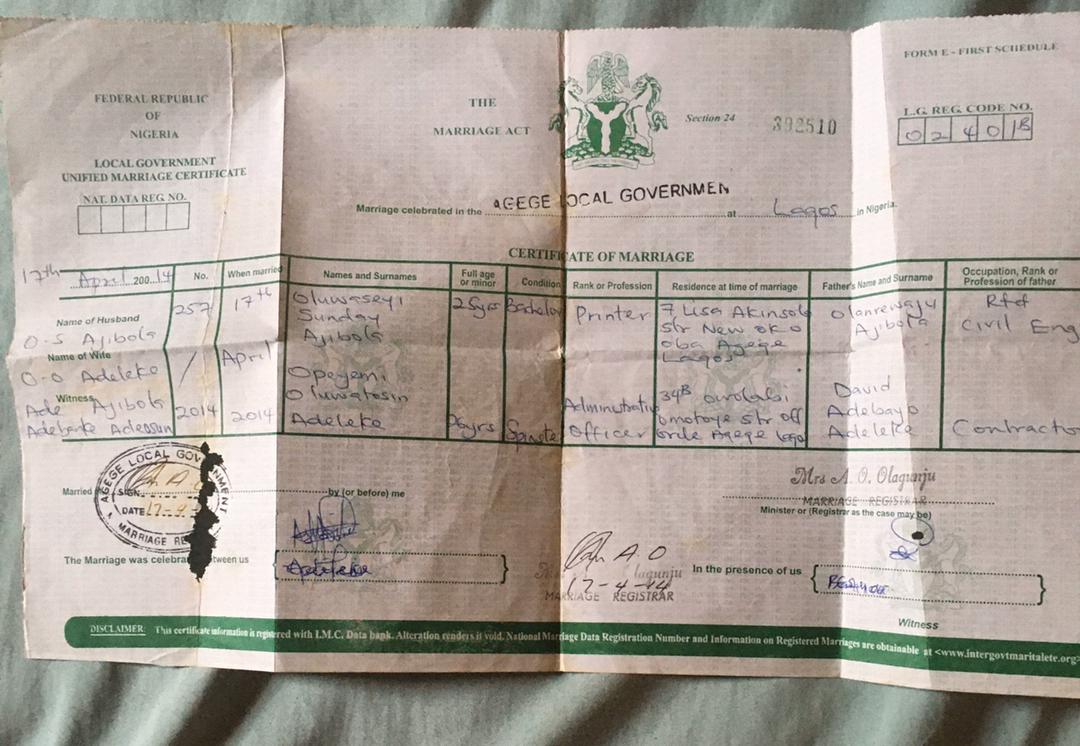 FORM E - FIRST SCHEDULE
FEDERAL REPUBLIC
OF
NIGERIA
LOCAL GOVERNMENT
UNIFIED MARRIAGE CERTIFICATE
NAT. DATA REG. NO.
THE
MARRIAGE ACT
Section 24
392510
L.G. REG. CODE NO.
0 2 4 0 1B
Marriage celebrated in the AGEGE LOCAL GOVERNMEN at Lagos in Nigeria.
CERTIFICATE OF MARRIAGE
17th April 200 14
No.
When married
Names and Surnames
Full age or minor
Condition
Rank or Profession
Residence at time of marriage
Father's Name and Surname
Occupation, Rank or Profession of father
Name of Husband
O-S Ajibola
Name of Wife
O-O Adeleke
Witness
Ade Ajibola
257
/
2014
17th
April
2014
Oluwaseyi
Sunday
Ajibola
25yrs
Bachelor
Printer
7 Lisa Akinsola
str New oko
oba Agege
Lagos
Olanrewaju
Ajibola
Rtd
Civil Eng
Opeyemi
Oluwatosin
Adeleke
Administrativ
Officer
34B
omotoye str off
orile Agege
David
Adebayo
Adeleke
Contractor
AGEGE LOCAL GOV NMENT
SIGN
DATE
MARRIAGE RE
Married
by (or before) me
Mrs A. O. Olagunju
MARRIAGE REGISTRAR
Minister or (Registrar as the case may be)
The Marriage was celebra tween us
Adeleke
A O
17-4-14
lagunju
MARRIAGE REGISTRAR
In the presence of us
Witness
DISCLAIMER: This certificate information is registered with I.M.C. Data bank. Alteration renders it void. National Marriage Data Registration Number and Information on Registered Marriages are obtainable at <www.intergovtmaritalete.org>